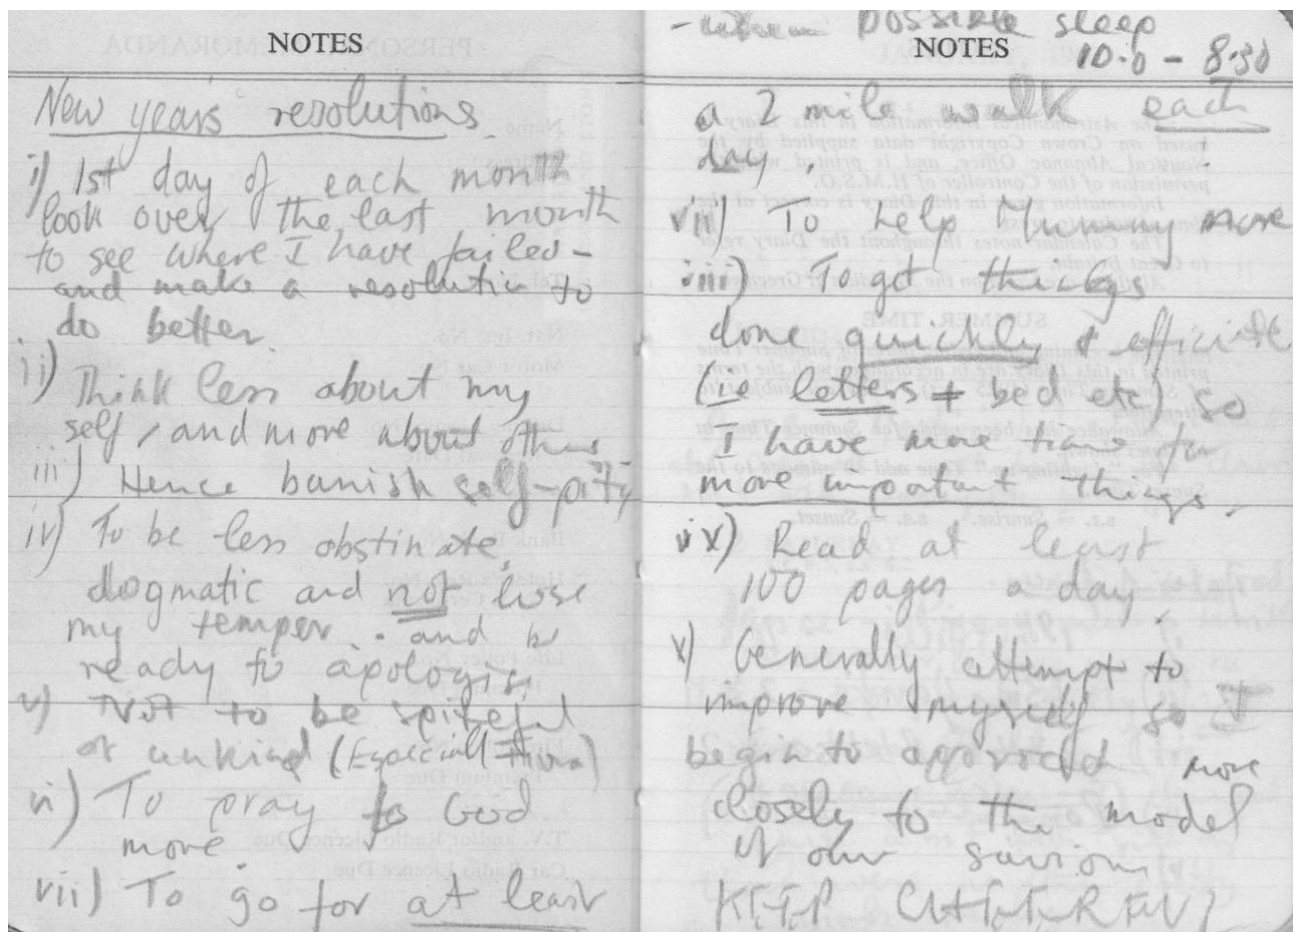 NOTES
New years resolutions
i) 1st day of each month
look over the last month
to see where I have failed -
and make a resolution to
do better
ii) Think less about my
self, and more about others
iii) Hence banish self-pity
iv) To be less obstinate,
dogmatic and not lose
my temper. and be
ready to apologise
v) Not to be spiteful
or unkind (Especially
vi) To pray to God
more.
vii) To go for at least
- when possible sleep
NOTES
10.0 - 8.30
a 2 mile walk each
day.
vii) To help Mummy more
iii) To get things
done quickly & efficient
(ie letters + bed etc) so
I have more time for
more important things.
ix) Read at least
100 pages a day.
x) Generally attempt to
improve myself so I
begin to approach more
closely to the model
of our saviour
KEEP CHEERFUL!